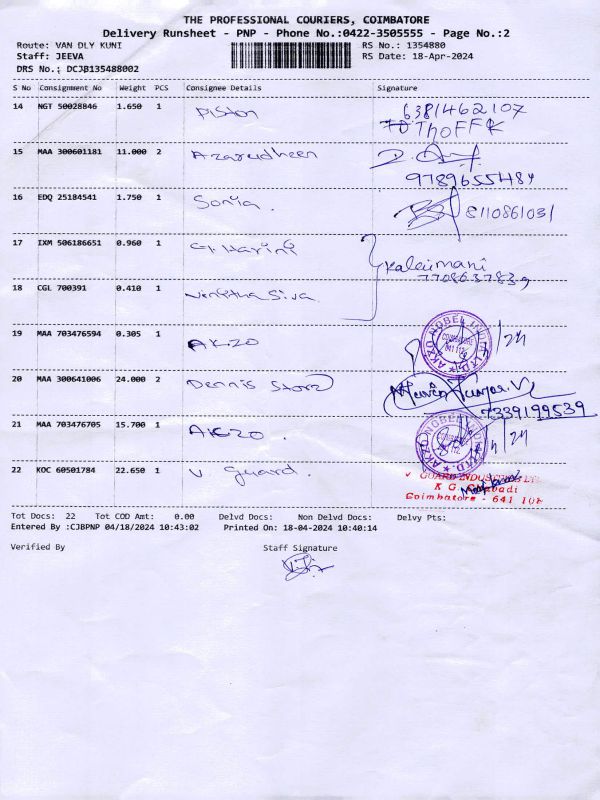 THE PROFESSIONAL COURIERS, COIMBATORE
Delivery Runsheet - PNP - Phone No.:0422-3505555 - Page No.:2
Route: VAN DLY KUNI RS No.: 1354880
Staff: JEEVA RS Date: 18-Apr-2024
DRS No.: DCJB135488002
S No Consignment No Weight PCS Consignee Details Signature
14 NGT 50028846 1.650 1 Piston 6381462107
15 MAA 300601181 11.000 2 Azarudheen
9789655484
16 EDQ 25184541 1.750 1 Sonia. 8110861031
17 IXM 506186651 0.960 1 G. Harini
Kaleimani
7708637839
18 CGL 700391 0.410 1 Siva
19 MAA 703476594 0.305 1 AKZO AKZO NOBEL INDIA LTD. COIMBATORE 641 112
20 MAA 300641006 24.000 2 Dennis Kumar. V
7339199539
21 MAA 703476705 15.700 1 AKZO. AKZO NOBEL INDIA LTD.
22 KOC 60501784 22.650 1 V Guard. V GUARD INDUSTRIES LTD
K G
Coimbatore - 641 108
Tot Docs: 22 Tot COD Amt: 0.00 Delvd Docs: Non Delvd Docs: Delvy Pts:
Entered By :CJBPNP 04/18/2024 10:43:02 Printed On: 18-04-2024 10:40:14
Verified By Staff Signature